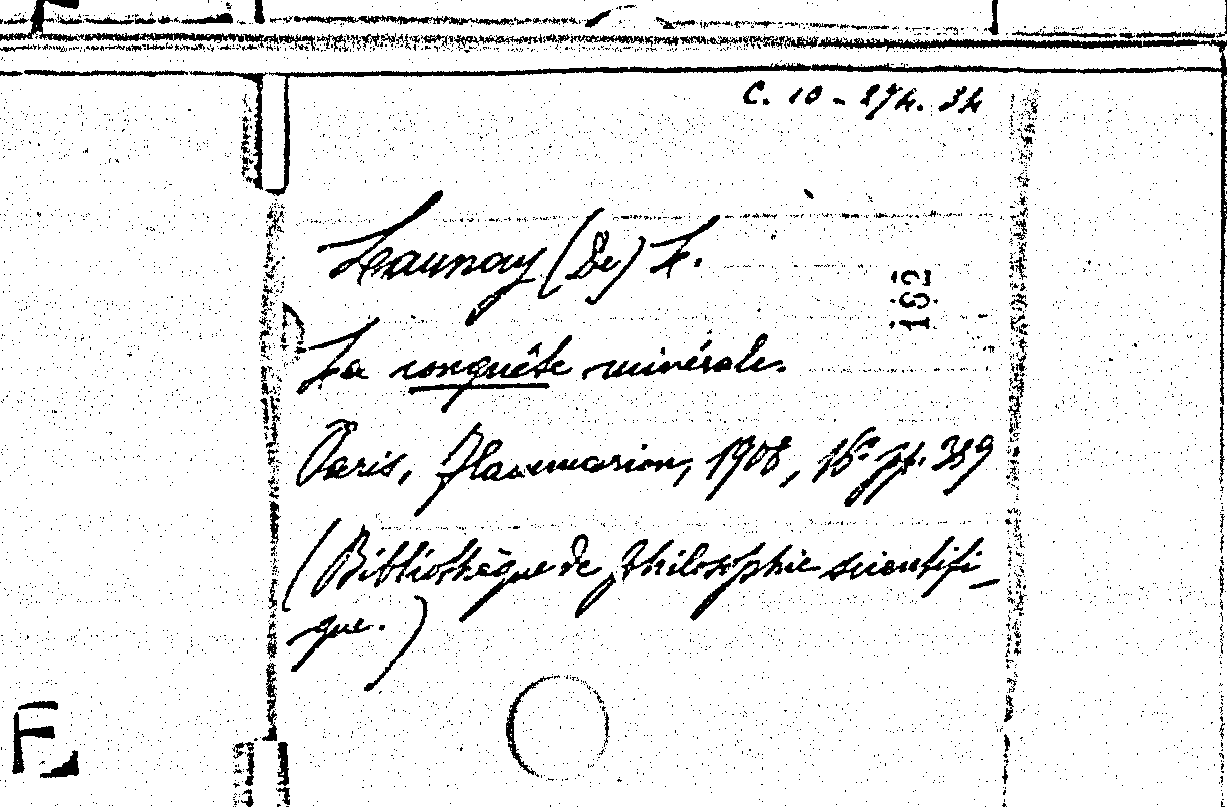 C. 10 - 274. 34
Launay (De) L.
162
La conquête minérale.
Paris, Flammarion, 1908, 16º pp. 389
(Bibliothèque de philosophie scientifi-
que.)